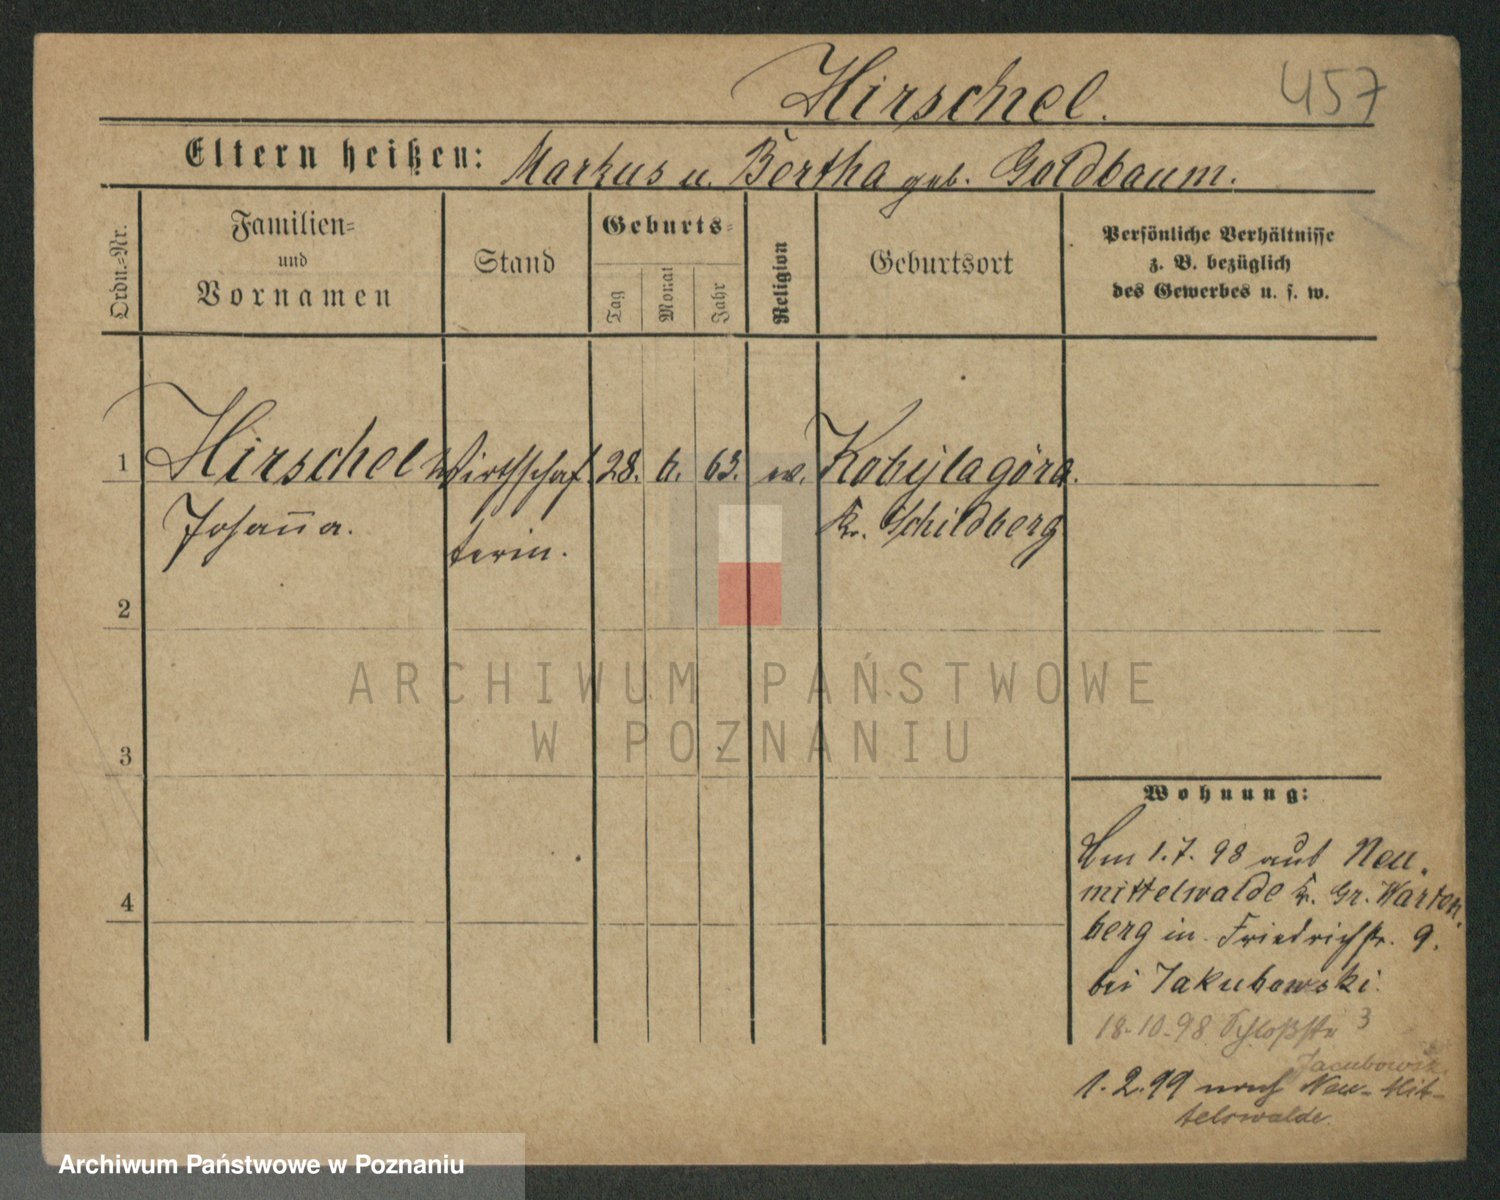 Hirschel. 457
Eltern heißen: Markus u. Bertha geb. Goldbaum.
Ordn.-Nr.
Familien-
und
Vornamen
Stand
Geburts-
Tag
Monat
Jahr
Religion
Geburtsort
Persönliche Verhältnisse
z. B. bezüglich
des Gewerbes u. s. w.
1 Hirschel Wirthschaf 28. 6. 63. Kobylagóra.
Johan̄a. terin. Kr. Schildberg
2
3
4
Wohnung:
Am 1.7.98 aus Neu-
mittelwalde Kr. Gr. Warten-
berg in Friedrichstr. 9.
bei Jakubowski.
18-10-98 Schloßstr 3
Jacubowsk.
1.2.99 nach Neu-Mit-
telwalde.
ARCHIWUM PAŃSTWOWE
W POZNANIU
Archiwum Państwowe w Poznaniu